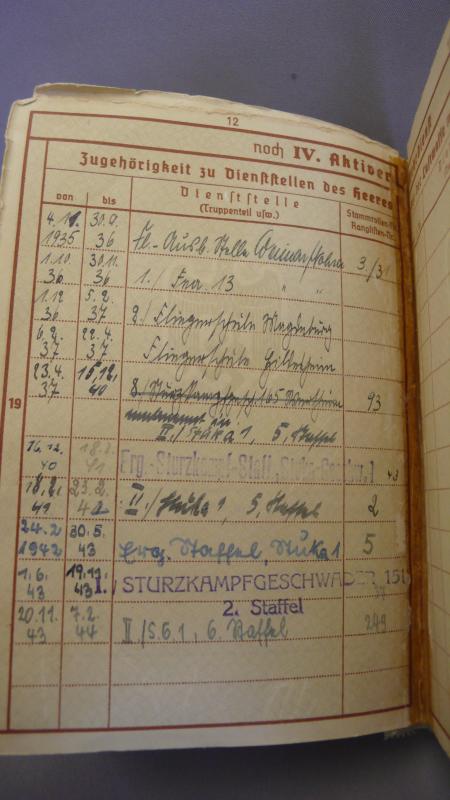 12
noch IV. Aktiver
Zugehörigkeit zu Dienststellen des Heeres
von bis Dienststelle (Truppenteil usw.) Stammrollen-Nr. Ranglisten-Nr.
19
4.11. 1935 30.9. 36 Fl.-Ausb. Stelle 3./3
1.10. 36 30.11. 36 1./ 13 " "
1.12. 36 5.2. 37 2./ Fliegerschule Magdeburg
6.2. 37 22.4. 37 Fliegerschule Hildesheim
23.4. 37 15.12. 40 165 93
umbenannt in
II./Stuka 1, 5. Staffel
16.12. 40 18.2. 41 Erg.-Sturzkampf-Staff. 43
18.2. 41 23.2. 42 II./Stuka 1, 5. Staffel 2
24.2. 1942 30.5. 43 Erg. Staffel, Stuka 1 5
1.6. 43 19.11. 43 I. STURZKAMPFGESCHWADER 151
2. Staffel
20.11. 43 7.2. 44 II./S.G 1, 6. Staffel 249